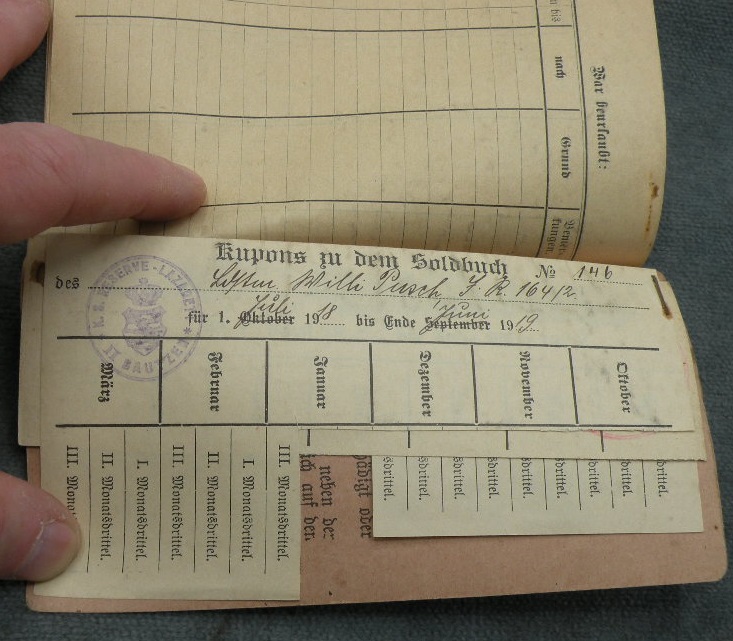 War beurlaubt:
bis
nach
Grund
Kupons zu dem Soldbuch № 146
des Willi Pusch, I. R. 164/2
für 1. Oktober Juli 1918 bis Ende September Juni 1919.
K. S. RESERVE-LAZARETT
II BAUTZEN
März Februar Januar Dezember November Oktober
III. Monatsdrittel. II. Monatsdrittel. I. Monatsdrittel. III. Monatsdrittel. II. Monatsdrittel. I. Monatsdrittel. III. Monatsdrittel.
neben der
ch auf den
ädigt oder
sdrittel. sdrittel. sdrittel. sdrittel. sdrittel. sdrittel. drittel. drittel.